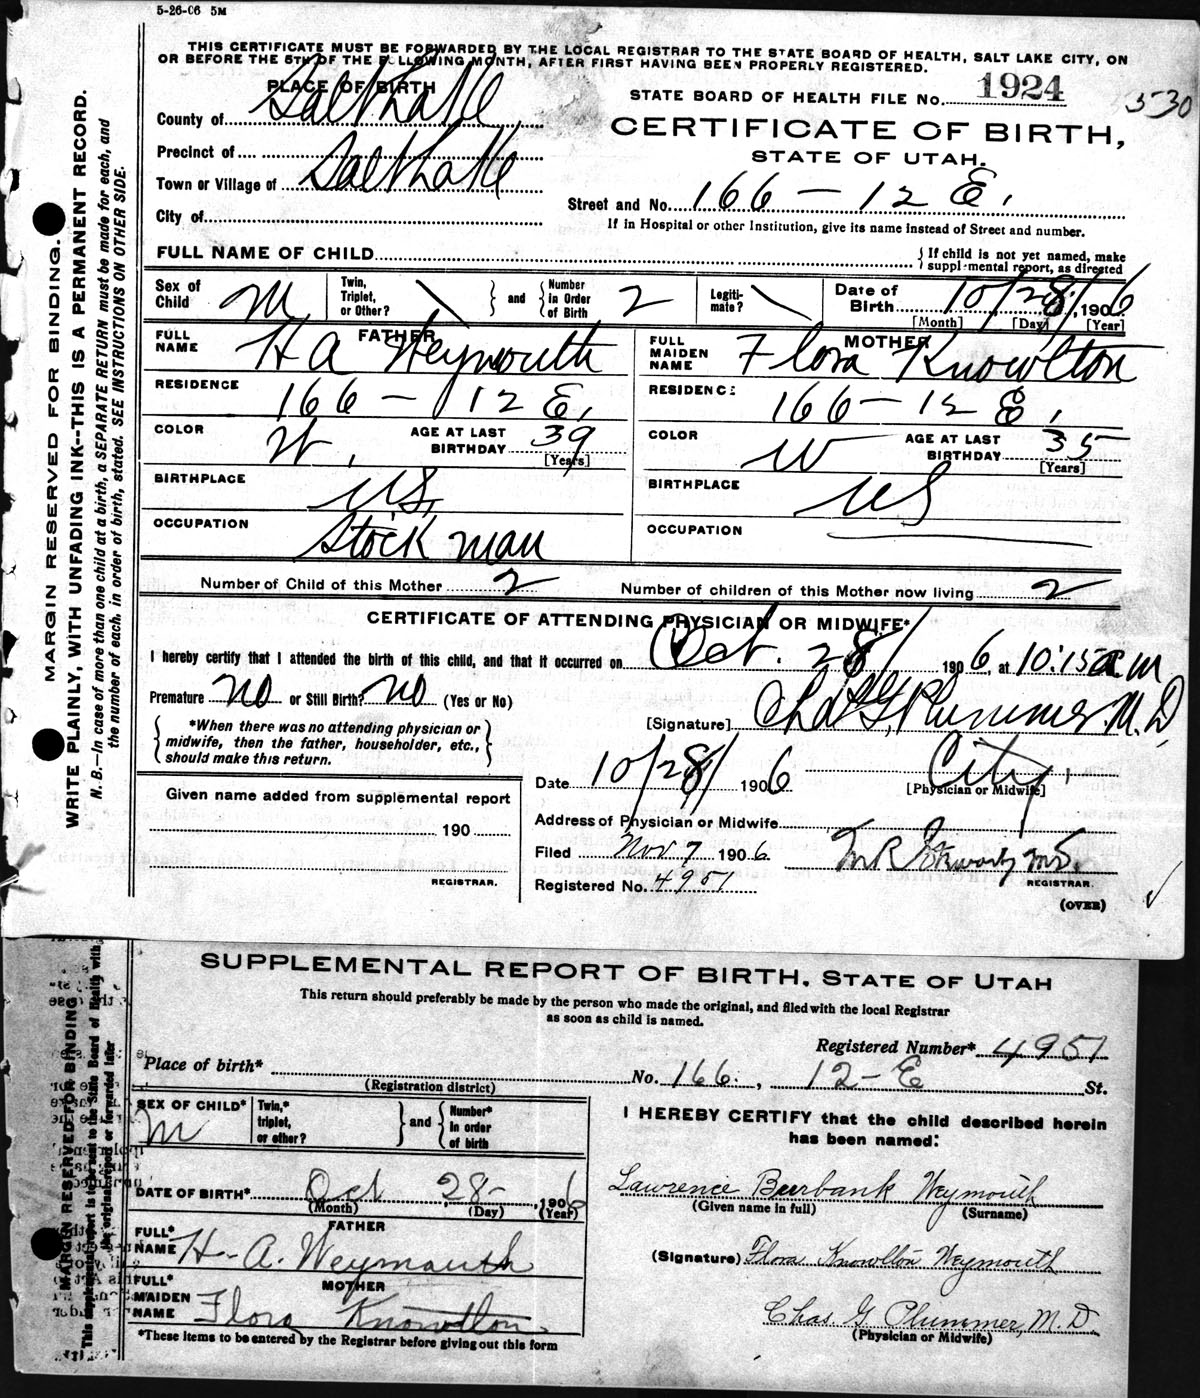 5-26-06 5M
THIS CERTIFICATE MUST BE FORWARDED BY THE LOCAL REGISTRAR TO THE STATE BOARD OF HEALTH, SALT LAKE CITY, ON
OR BEFORE THE 5TH OF THE FOLLOWING MONTH, AFTER FIRST HAVING BEEN PROPERLY REGISTERED.
PLACE OF BIRTH
STATE BOARD OF HEALTH FILE No. 1924
530
County of Salt Lake
CERTIFICATE OF BIRTH,
STATE OF UTAH.
Precinct of
Town or Village of Salt Lake
City of
Street and No. 166 — 12 E.
If in Hospital or other Institution, give its name instead of Street and number.
FULL NAME OF CHILD
{ If child is not yet named, make
supplemental report, as directed
Sex of Child M
Twin, Triplet, or Other? \ } and { Number in Order of Birth 2
Legitimate? \
Date of Birth 10/28/, 1906
[Month] [Day] [Year]
FATHER
FULL NAME H A Weymouth
RESIDENCE 166 — 12 E.
COLOR W. AGE AT LAST BIRTHDAY 39 [Years]
BIRTHPLACE US,
OCCUPATION Stock man
MOTHER
FULL MAIDEN NAME Flora Knowlton
RESIDENCE 166 — 12 E.
COLOR W AGE AT LAST BIRTHDAY 35 [Years]
BIRTHPLACE US
OCCUPATION
Number of Child of this Mother 2 Number of children of this Mother now living 2
CERTIFICATE OF ATTENDING PHYSICIAN OR MIDWIFE*
I hereby certify that I attended the birth of this child, and that it occurred on Oct. 28/ 1906, at 10:15 a.m
Premature no or Still Birth? no (Yes or No)
{ *When there was no attending physician or
midwife, then the father, householder, etc.,
should make this return. }
[Signature] Chas G. Plummer. M.D,
Date 10/28/ 1906 City,
[Physician or Midwife]
Given name added from supplemental report
190
REGISTRAR.
Address of Physician or Midwife
Filed Nov 7 1906
REGISTRAR.
Registered No. 4951
(OVER)
MARGIN RESERVED FOR BINDING.
WRITE PLAINLY, WITH UNFADING INK--THIS IS A PERMANENT RECORD.
N. B.—In case of more than one child at a birth, a SEPARATE RETURN must be made for each, and
the number of each, in order of birth, stated. SEE INSTRUCTIONS ON OTHER SIDE.
SUPPLEMENTAL REPORT OF BIRTH, STATE OF UTAH
This return should preferably be made by the person who made the original, and filed with the local Registrar
as soon as child is named.
Registered Number* 4951
Place of birth* No. 166. , 12-E St.
(Registration district)
SEX OF CHILD* M
Twin,* triplet, or other? } and { Number* in order of birth
DATE OF BIRTH* Oct 28- , 1906
(Month) (Day) (Year)
FATHER
FULL* NAME H- A. Weymouth
MOTHER
FULL* MAIDEN NAME Flora Knowlton
*These items to be entered by the Registrar before giving out this form
I HEREBY CERTIFY that the child described herein
has been named:
Lawrence Burbank Weymouth
(Given name in full) (Surname)
(Signature) Flora Knowlton Weymouth
Chas. G Plummer, M.D.
(Physician or Midwife)
MARGIN RESERVED FOR BINDING
This supplemental report is to be sent to the State Board of Health with
the original report or forwarded later